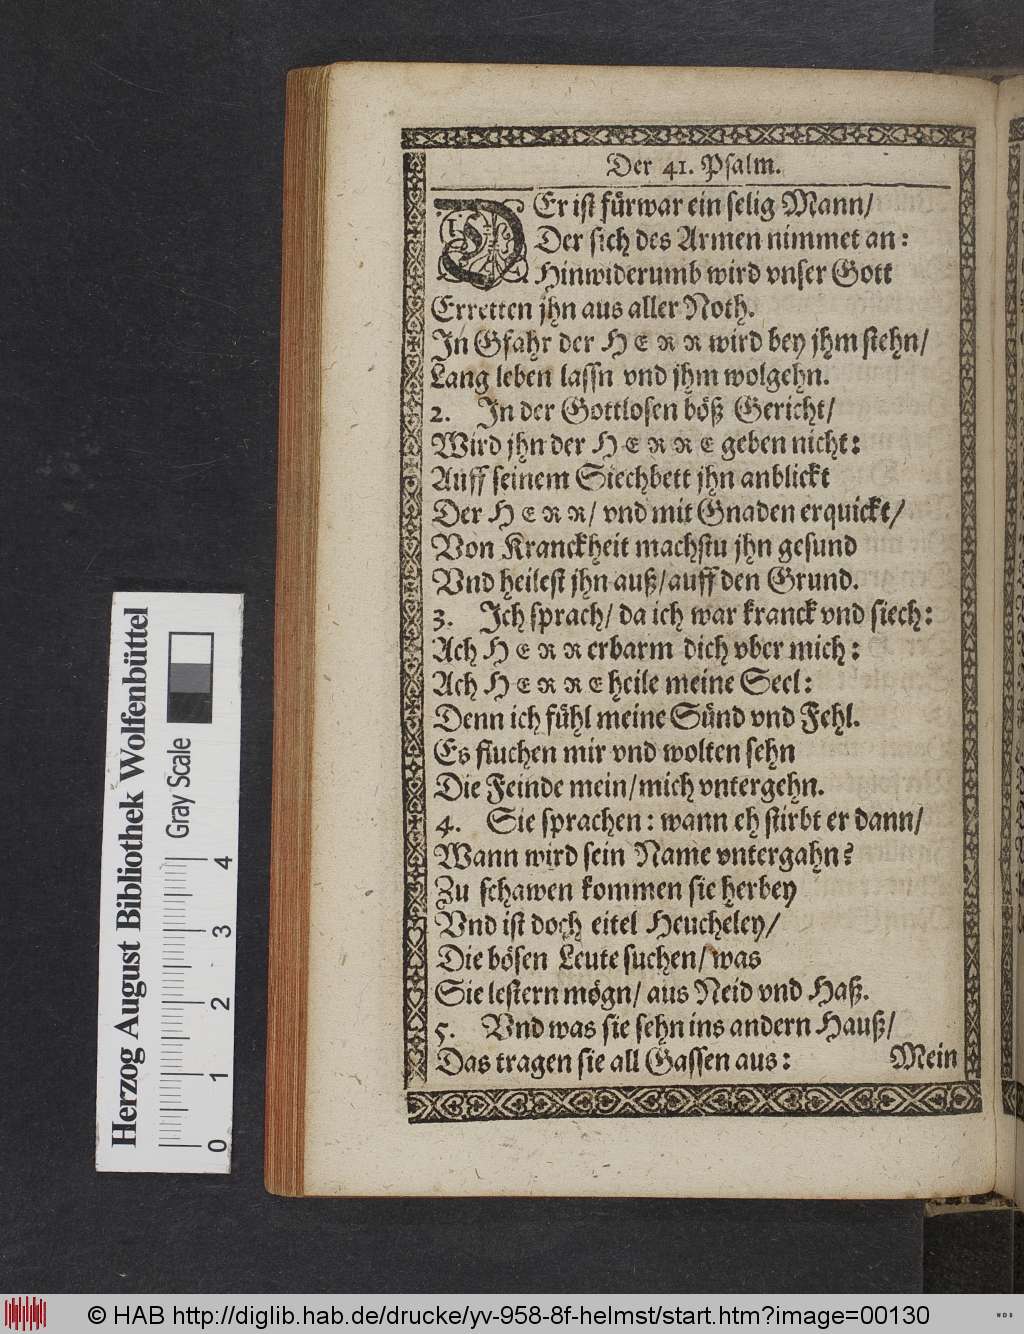 Der 41. Psalm.
DEr ist fürwar ein selig Mann/
Der sich des Armen nimmet an:
Hinwiderumb wird vnser Gott
Erretten jhn aus aller Noth.
In Gfahr der HERR wird bey jhm stehn/
Lang leben lassn vnd jhm wolgehn.
2. In der Gottlosen böß Gericht/
Wird jhn der HERRE geben nicht:
Auff seinem Siechbett jhn anblickt
Der HERR/ vnd mit Gnaden erquickt/
Von Kranckheit machstu jhn gesund
Vnd heilest jhn auß/auff den Grund.
3. Ich sprach/ da ich war kranck vnd siech:
Ach HERR erbarm dich vber mich:
Ach HERRE heile meine Seel:
Denn ich fühl meine Sünd vnd Fehl.
Es fluchen mir vnd wolten sehn
Die Feinde mein/mich vntergehn.
4. Sie sprachen: wann eh stirbt er dann/
Wann wird sein Name vntergahn?
Zu schawen kommen sie herbey
Vnd ist doch eitel Heucheley/
Die bösen Leute suchen/ was
Sie lestern mögn/ aus Neid vnd Haß.
5. Vnd was sie sehn ins andern Hauß/
Das tragen sie all Gassen aus:
Mein
Herzog August Bibliothek Wolfenbüttel
Gray Scale
0 1 2 3 4
© HAB http://diglib.hab.de/drucke/yv-958-8f-helmst/start.htm?image=00130